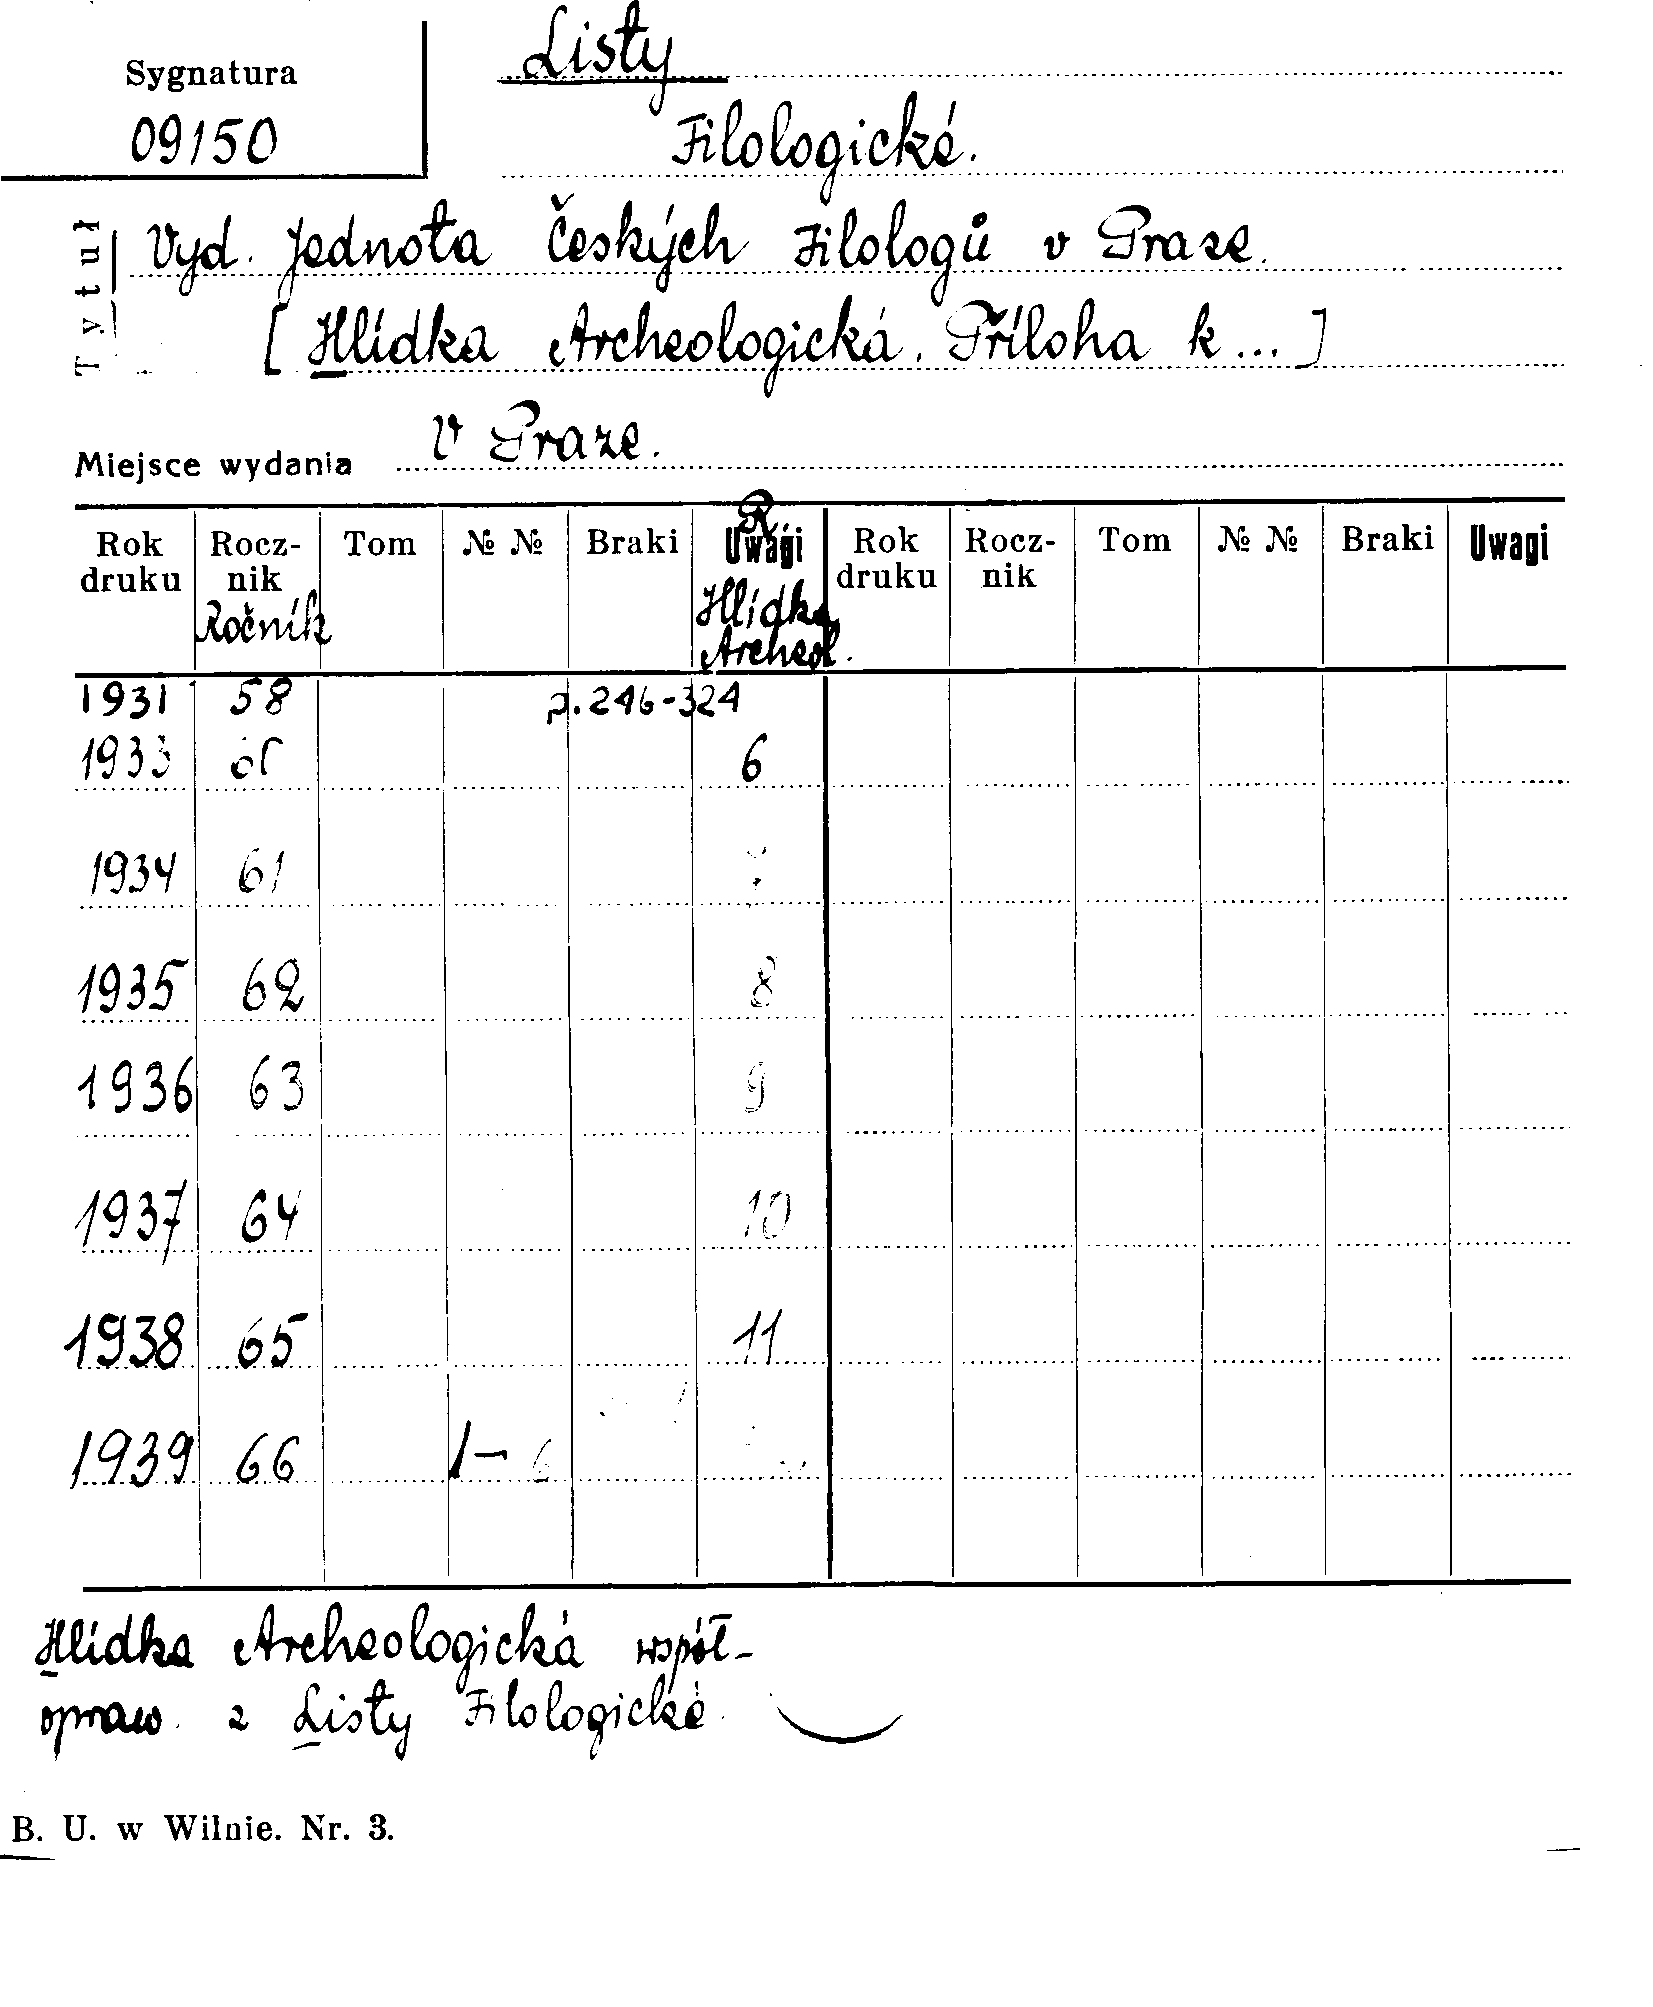 Sygnatura
09150
Listy
Filologické.
Tytuł
Vyd. Jednota Českých Filologů v Praze.
[ Hlídka Archeologická. Příloha k ... ]
Miejsce wydania V Praze.
Rok druku Rocz-nik Tom № № Braki Uwagi Rok druku Rocz-nik Tom № № Braki Uwagi
Ročník R. Hlídka Archeol.
1931 58 p. 246-324
1933 6
1934 61
1935 62 8
1936 63 9
1937 64 10
1938 65 11
1939 66 1-6
Hlídka Archeologická współ-
opraw. z Listy Filologické.
B. U. w Wilnie. Nr. 3.